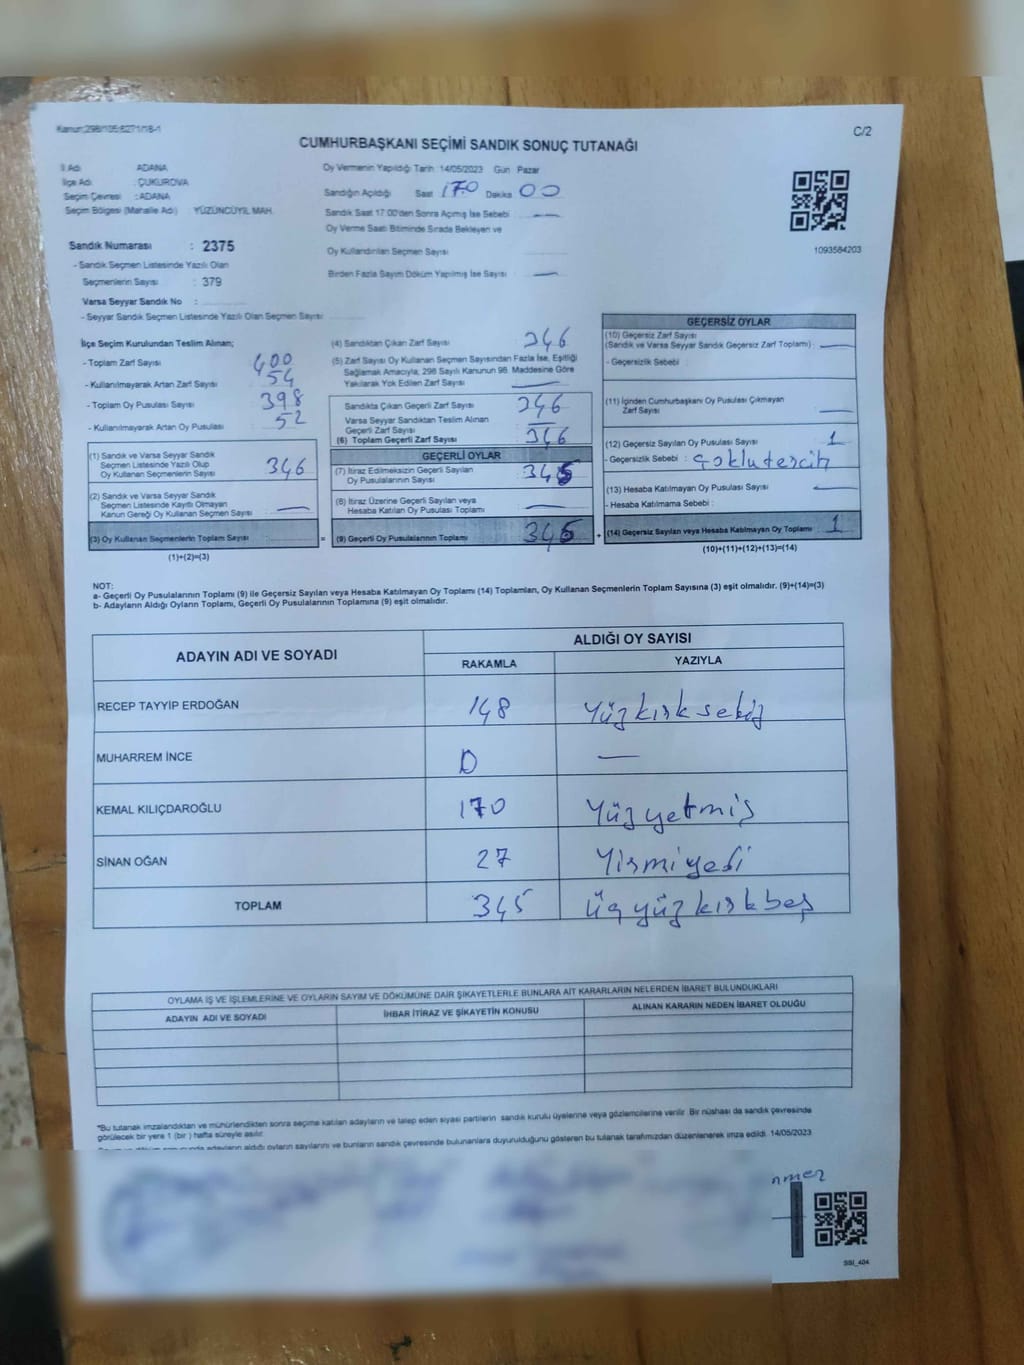 Kanun:298/105;6271/18-1
C/2
CUMHURBAŞKANI SEÇİMİ SANDIK SONUÇ TUTANAĞI
İl Adı ADANA
İlçe Adı : ÇUKUROVA
Seçim Çevresi : ADANA
Seçim Bölgesi (Mahalle Adı) YÜZÜNCÜYIL MAH.
Sandık Numarası : 2375
- Sandık Seçmen Listesinde Yazılı Olan
Seçmenlerin Sayısı : 379
Varsa Seyyar Sandık No :
- Seyyar Sandık Seçmen Listesinde Yazılı Olan Seçmen Sayısı
Oy Vermenin Yapıldığı Tarih 14/05/2023 Gün Pazar
Sandığın Açıldığı Saat 17.0 Dakika 00
Sandık Saat 17:00'den Sonra Açımış İse Sebebi —
Oy Verme Saati Bitiminde Sırada Bekleyen ve
Oy Kullandırılan Seçmen Sayısı
Birden Fazla Sayım Döküm Yapılmış İse Sayısı —
1093584203
İlçe Seçim Kurulundan Teslim Alınan;
- Toplam Zarf Sayısı 400
- Kullanılmayarak Artan Zarf Sayısı 54
- Toplam Oy Pusulası Sayısı 398
- Kullanılmayarak Artan Oy Pusulası 52
(1) Sandık ve Varsa Seyyar Sandık
Seçmen Listesinde Yazılı Olup
Oy Kullanan Seçmenlerin Sayısı 346
(2) Sandık ve Varsa Seyyar Sandık
Seçmen Listesinde Kayıtlı Olmayan
Kanun Gereği Oy Kullanan Seçmen Sayısı —
(3) Oy Kullanan Seçmenlerin Toplam Sayısı =
(1)+(2)=(3)
(4) Sandıktan Çıkan Zarf Sayısı 346
(5) Zarf Sayısı Oy Kullanan Seçmen Sayısından Fazla İse, Eşitliği
Sağlamak Amacıyla, 298 Sayılı Kanunun 98. Maddesine Göre
Yakılarak Yok Edilen Zarf Sayısı —
Sandıkta Çıkan Geçerli Zarf Sayısı 346
Varsa Seyyar Sandıktan Teslim Alınan
Geçerli Zarf Sayısı —
(6) Toplam Geçerli Zarf Sayısı 346
GEÇERLİ OYLAR
(7) İtiraz Edilmeksizin Geçerli Sayılan
Oy Pusulalarının Sayısı 345
(8) İtiraz Üzerine Geçerli Sayılan veya
Hesaba Katılan Oy Pusulası Toplamı —
(9) Geçerli Oy Pusulalarının Toplamı 345 +
GEÇERSİZ OYLAR
(10) Geçersiz Zarf Sayısı
(Sandık ve Varsa Seyyar Sandık Geçersiz Zarf Toplamı) —
- Geçersizlik Sebebi
(11) İçinden Cumhurbaşkanı Oy Pusulası Çıkmayan
Zarf Sayısı —
(12) Geçersiz Sayılan Oy Pusulası Sayısı 1
- Geçersizlik Sebebi : çoklutercih
(13) Hesaba Katılmayan Oy Pusulası Sayısı —
- Hesaba Katılmama Sebebi :
(14) Geçersiz Sayılan veya Hesaba Katılmayan Oy Toplamı 1
(10)+(11)+(12)+(13)=(14)
NOT:
a- Geçerli Oy Pusulalarının Toplamı (9) ile Geçersiz Sayılan veya Hesaba Katılmayan Oy Toplamı (14) Toplamları, Oy Kullanan Seçmenlerin Toplam Sayısına (3) eşit olmalıdır. (9)+(14)=(3)
b- Adayların Aldığı Oyların Toplamı, Geçerli Oy Pusulalarının Toplamına (9) eşit olmalıdır.
ADAYIN ADI VE SOYADI ALDIĞI OY SAYISI
RAKAMLA YAZIYLA
RECEP TAYYİP ERDOĞAN 148 Yüzkırksekiz
MUHARREM İNCE 0 —
KEMAL KILIÇDAROĞLU 170 Yüzyetmiş
SİNAN OĞAN 27 Yirmiyedi
TOPLAM 345 üçyüzkırkbeş
OYLAMA İŞ VE İŞLEMLERİNE VE OYLARIN SAYIM VE DÖKÜMÜNE DAİR ŞİKAYETLERLE BUNLARA AİT KARARLARIN NELERDEN İBARET BULUNDUKLARI
ADAYIN ADI VE SOYADI İHBAR İTİRAZ VE ŞİKAYETİN KONUSU ALINAN KARARIN NEDEN İBARET OLDUĞU
*Bu tutanak imzalandıktan ve mühürlendikten sonra seçime katılan adayların ve talep eden siyasi partilerin sandık kurulu üyelerine veya gözlemcilerine verilir. Bir nüshası da sandık çevresinde
görülecek bir yere 1 (bir) hafta süreyle asılır.
adayların aldığı oyların sayılarını ve bunların sandık çevresinde bulunanlara duyurulduğunu gösteren bu tutanak tarafımızdan düzenlenerek imza edildi. 14/05/2023
nmez
SSI_404